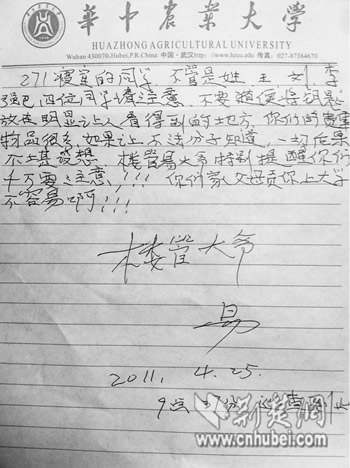 華中農業大學
HUAZHONG AGRICULTURAL UNIVERSITY
Wuhan 430070, P.R. China 中国·武汉 http://www.hzau.edu.cn 传真: 027-87384670
271寝室的同学 不管是姓 王 刘、李
四位同学请注意、不要随便将钥匙
放在明显让人看得到的地方、你们的贵重
物品很多,如果让不法分子知道,一切后果
不堪设想. 楼管易大爷特别提醒你们
千万要注意!!! 你们家父母供你上大学
不容易啊!!!
楼管大爷
易
2011. 4. 25.
9点
新楚网
www.cnhubei.com